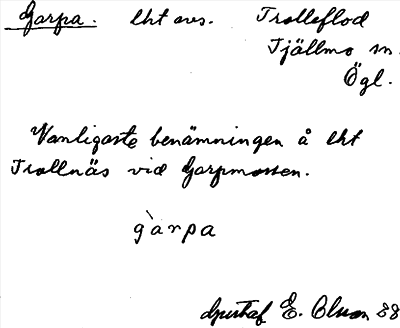 Garpa. lht avs. Trolleflod
Tjällmo sn.
Ögl.
Vanligaste benämningen å lht
Trollnäs vid Garpmossen.
gàrpa
Gustaf E. Olson 38